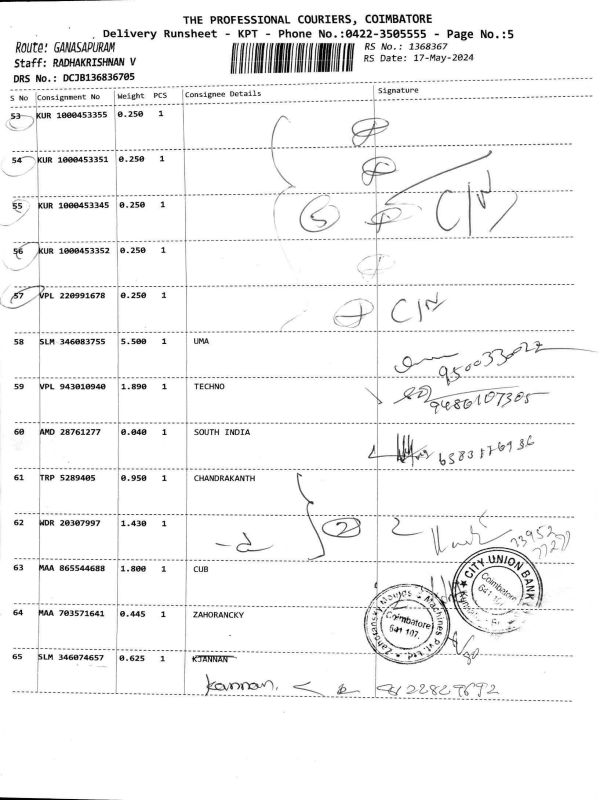 THE PROFESSIONAL COURIERS, COIMBATORE
Delivery Runsheet - KPT - Phone No.:0422-3505555 - Page No.:5
Route: GANASAPURAM
RS No.: 1368367
Staff: RADHAKRISHNAN V
RS Date: 17-May-2024
DRS No.: DCJB136836705
S No Consignment No Weight PCS Consignee Details Signature
53 KUR 1000453355 0.250 1
54 KUR 1000453351 0.250 1
55 KUR 1000453345 0.250 1
5 C/N
56 KUR 1000453352 0.250 1
57 VPL 220991678 0.250 1
C/N
58 SLM 346083755 5.500 1 UMA
59 VPL 943010940 1.890 1 TECHNO
9486107305
60 AMD 28761277 0.040 1 SOUTH INDIA
61 TRP 5289405 0.950 1 CHANDRAKANTH
62 WDR 20307997 1.430 1
2
63 MAA 865544688 1.800 1 CUB
CITY UNION BANK
Coimbatore
64 MAA 703571641 0.445 1 ZAHORANCKY
Zahoransky Moulds & Machines Pvt. Ltd.
Coimbatore
641 107.
65 SLM 346074657 0.625 1 KJANNAN
Kannan.